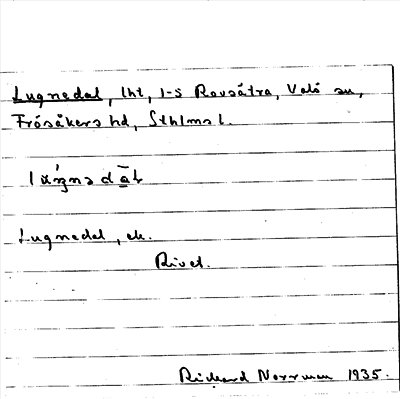 Lugnedal, lht, 1-s Ravsätra, Valö sn,
Frösåkers hd, Sthlms l.
Lugnedal, ek.
Rivet.
Rickard Norrman 1935.